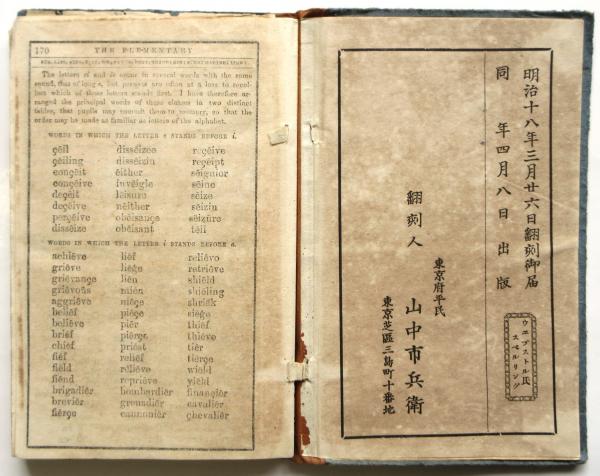 170 THE ELEMENTARY
The letters ei and ie occur in several words with the same
sound, that of long e, but persons are often at a loss to recol-
lect which of these letters stands first. I have therefore ar-
ranged the principal words of these classes in two distinct
tables, that pupils may commit them to memory, so that the
order may be made as familiar as letters of the alphabet.
WORDS IN WHICH THE LETTER e STANDS BEFORE i.
çēil disseizee reçēive
çēiling disseizin reçēipt
conçēit ēither sēignior
conçēive invēigle sēine
deçēit lēisure sēize
deçēive nēither sēizin
perçēive obēisançe sēizūre
dissēize obēisant tēil
WORDS IN WHICH THE LETTER i STANDS BEFORE e.
achiēve liēf reliēvo
griēve liēġe retriēve
griēvançe liēn shiēld
griēvoŭs miēn shiēling
aggriēve niēçe shriēk
beliēf piēçe siēġe
beliēve piēr thiēf
briēf piērçe thiēve
chiēf priēst tiēr
fiēf reliēf tiērçe
fiēld reliēve wiēld
fiēnd repriēve yiēld
brigadiēr bombardiēr finançiēr
breviēr grenadiēr cavaliēr
fiērçe cannoniēr çhevaliēr
明治十八年三月廿六日翻刻御届
同 年四月八日出版
翻刻人
東京府平民
山中市兵衛
東京芝區三島町十番地
ウエブストル氏
スペルリング